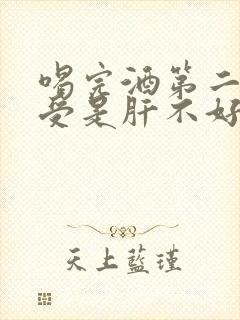 喝完酒第二
受是肝不好
天上藍瑾